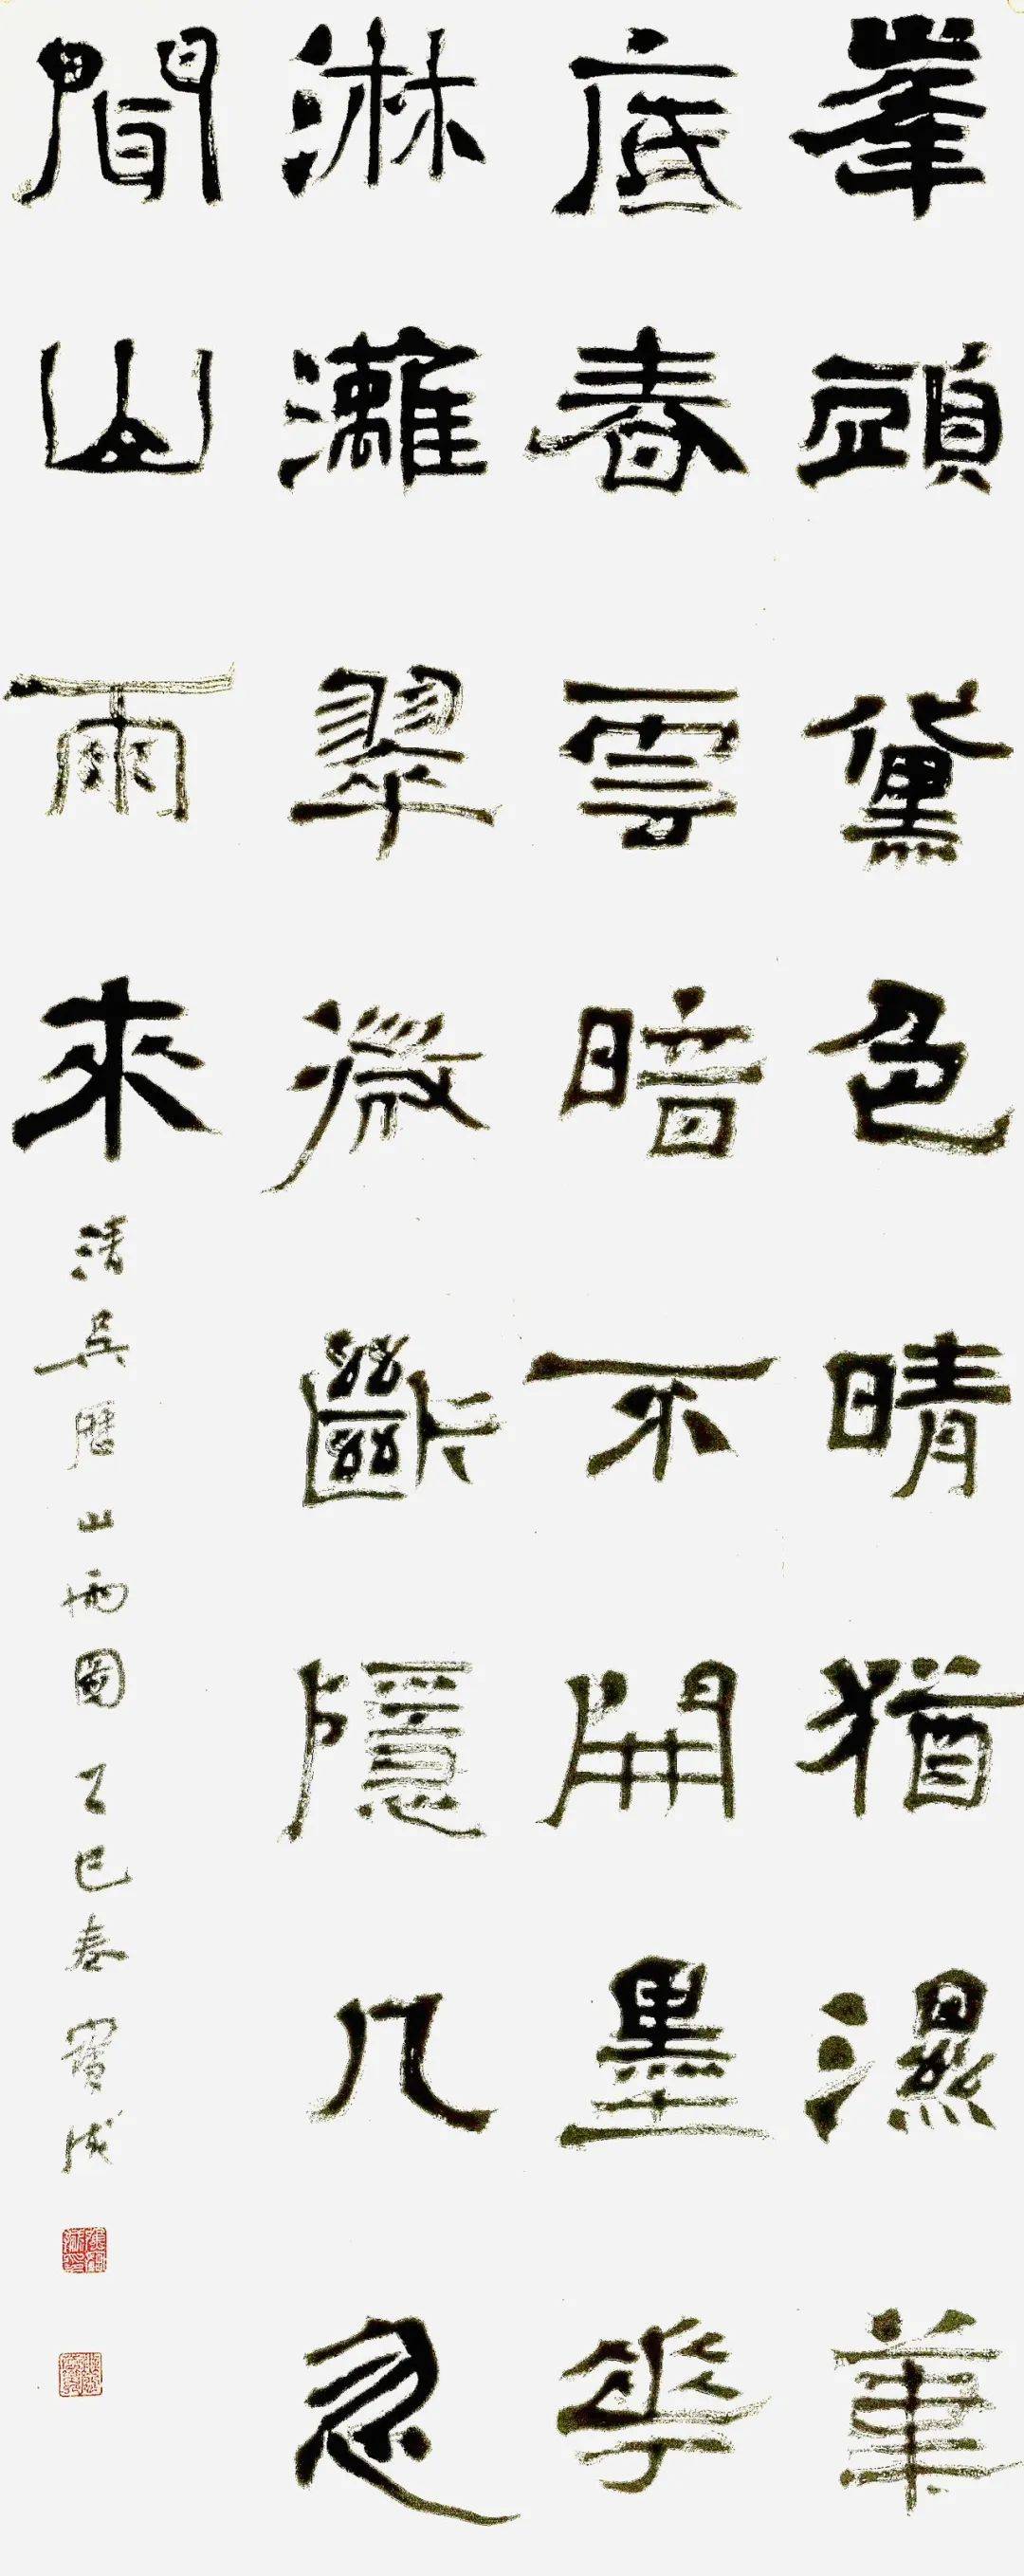 峯頭黛色晴猶濕筆
底春雲暗不開墨花
淋灕翠微斷隱几忽
聞山雨來
清吳歷山雨圖 乙巳春